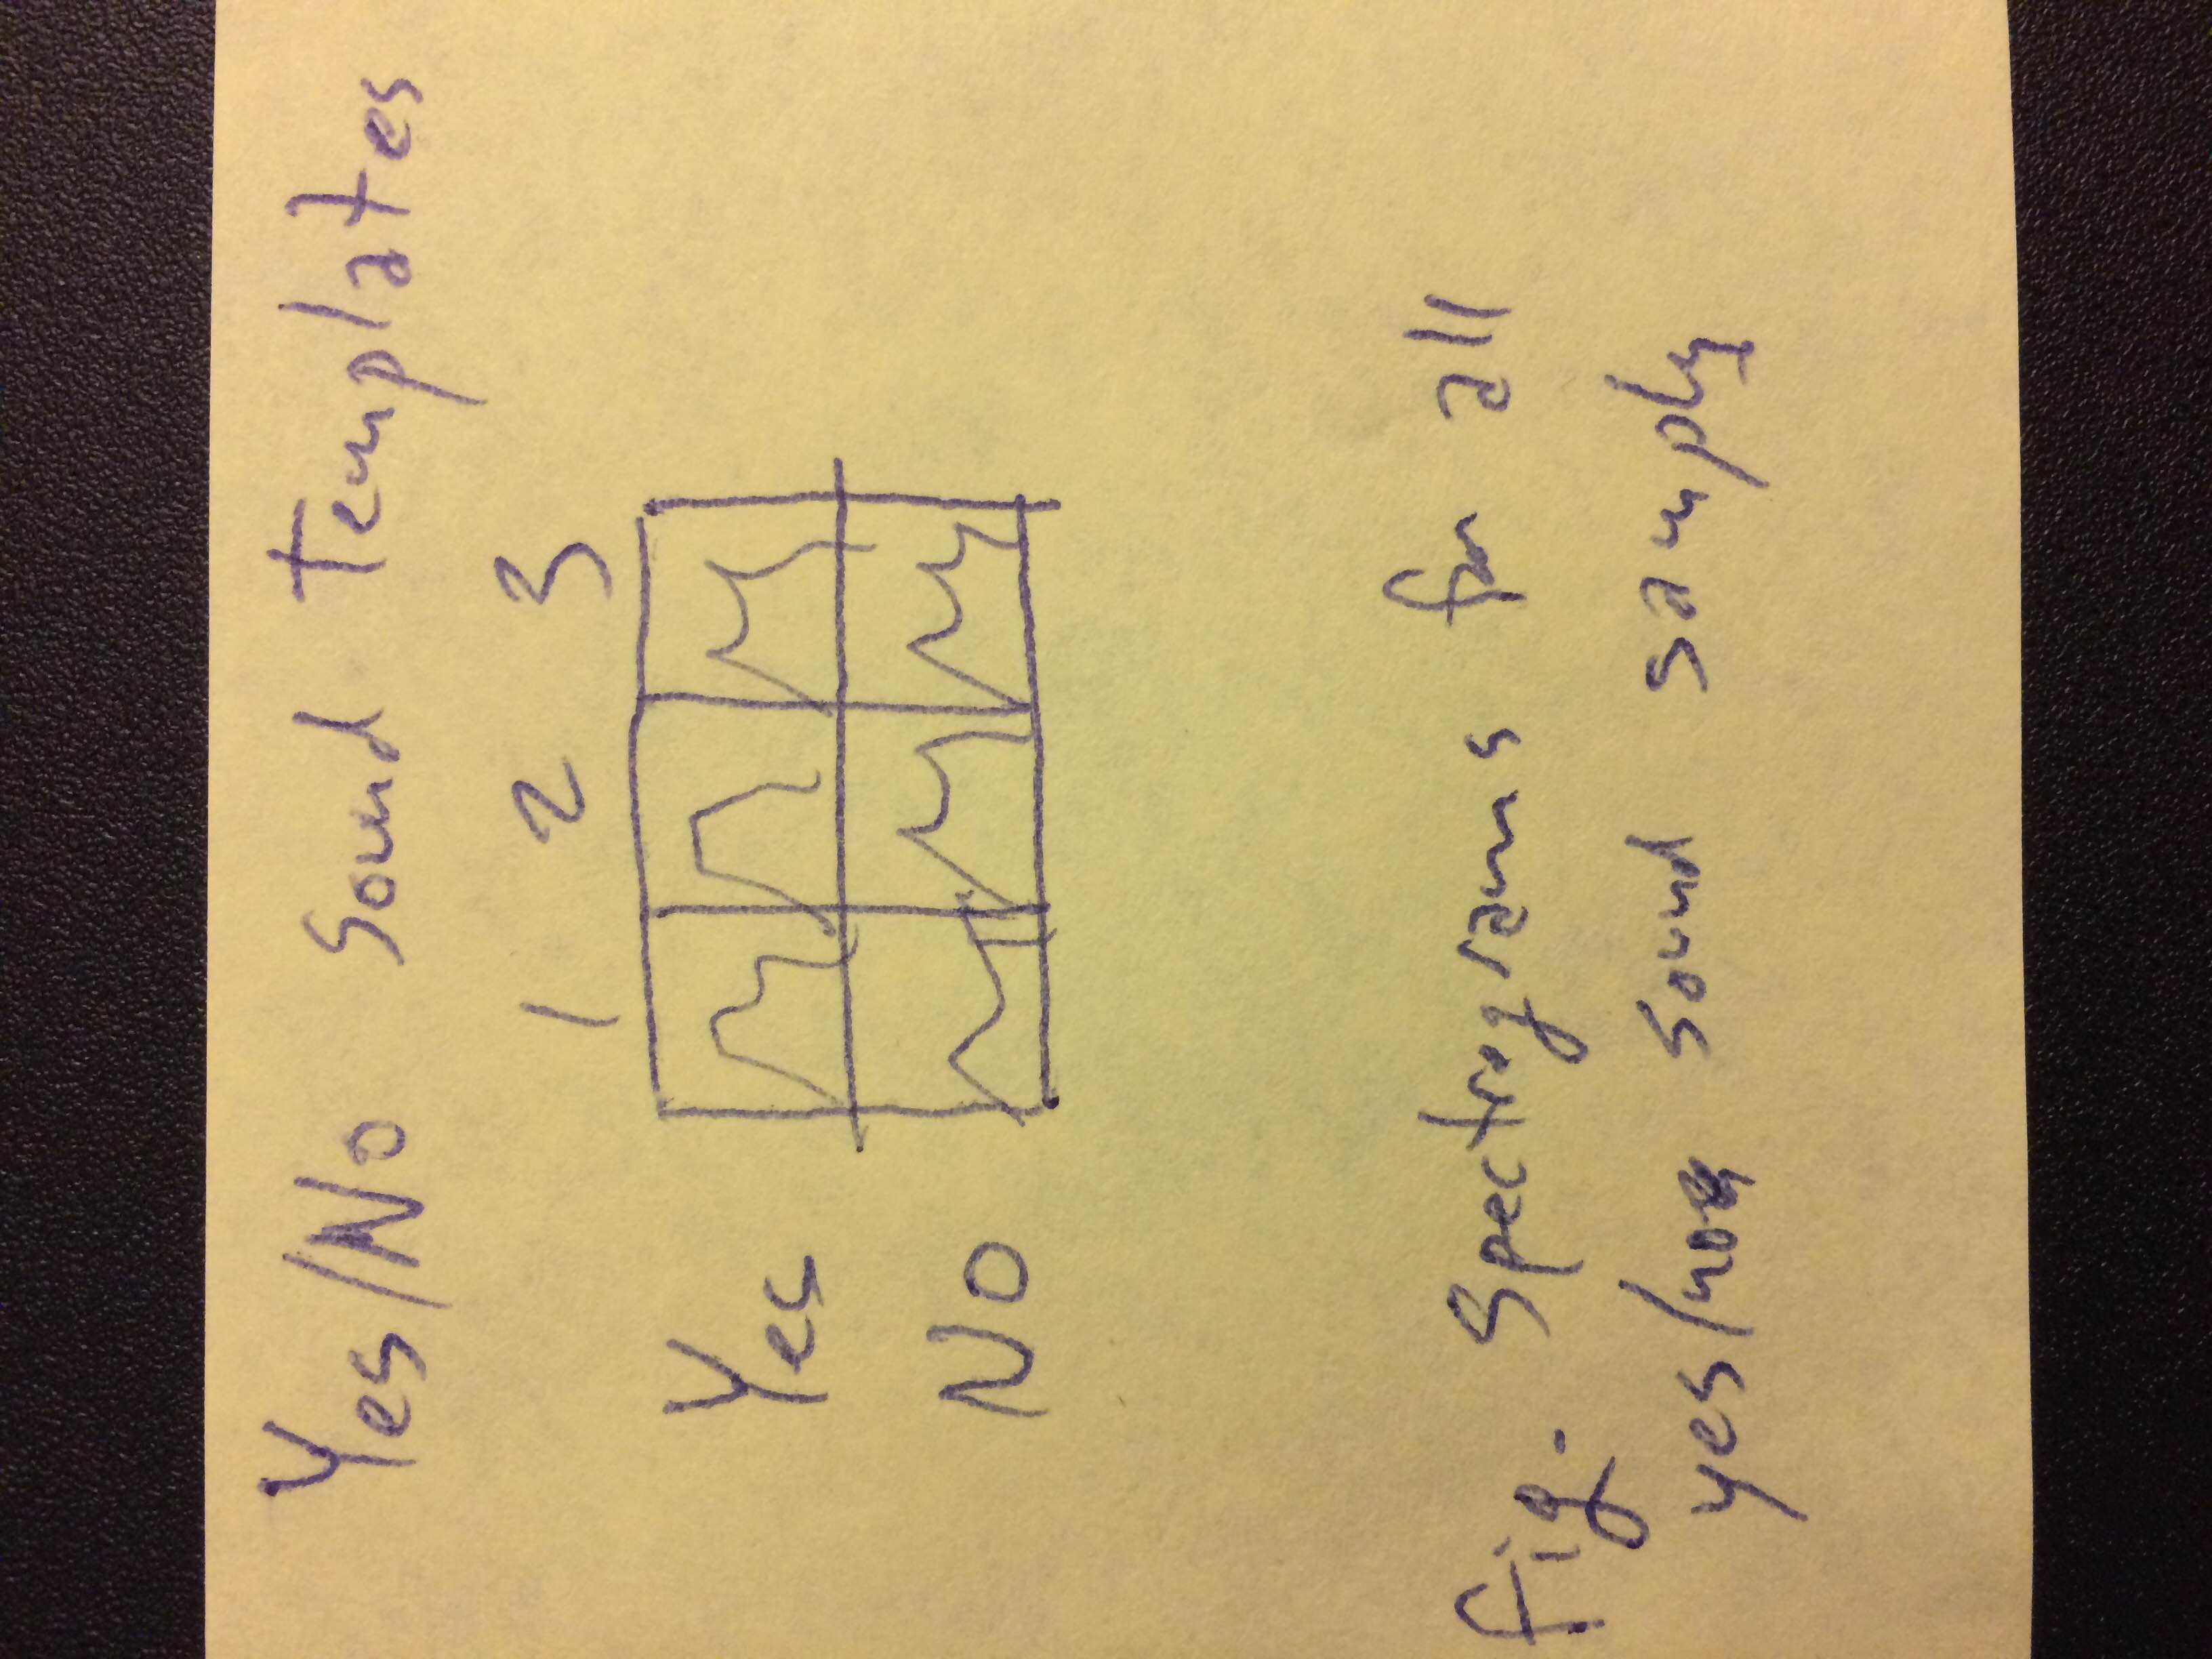 Yes/No Sound Templates
1 2 3
Yes
No
Fig. Spectrograms for all
yes/no sound samples